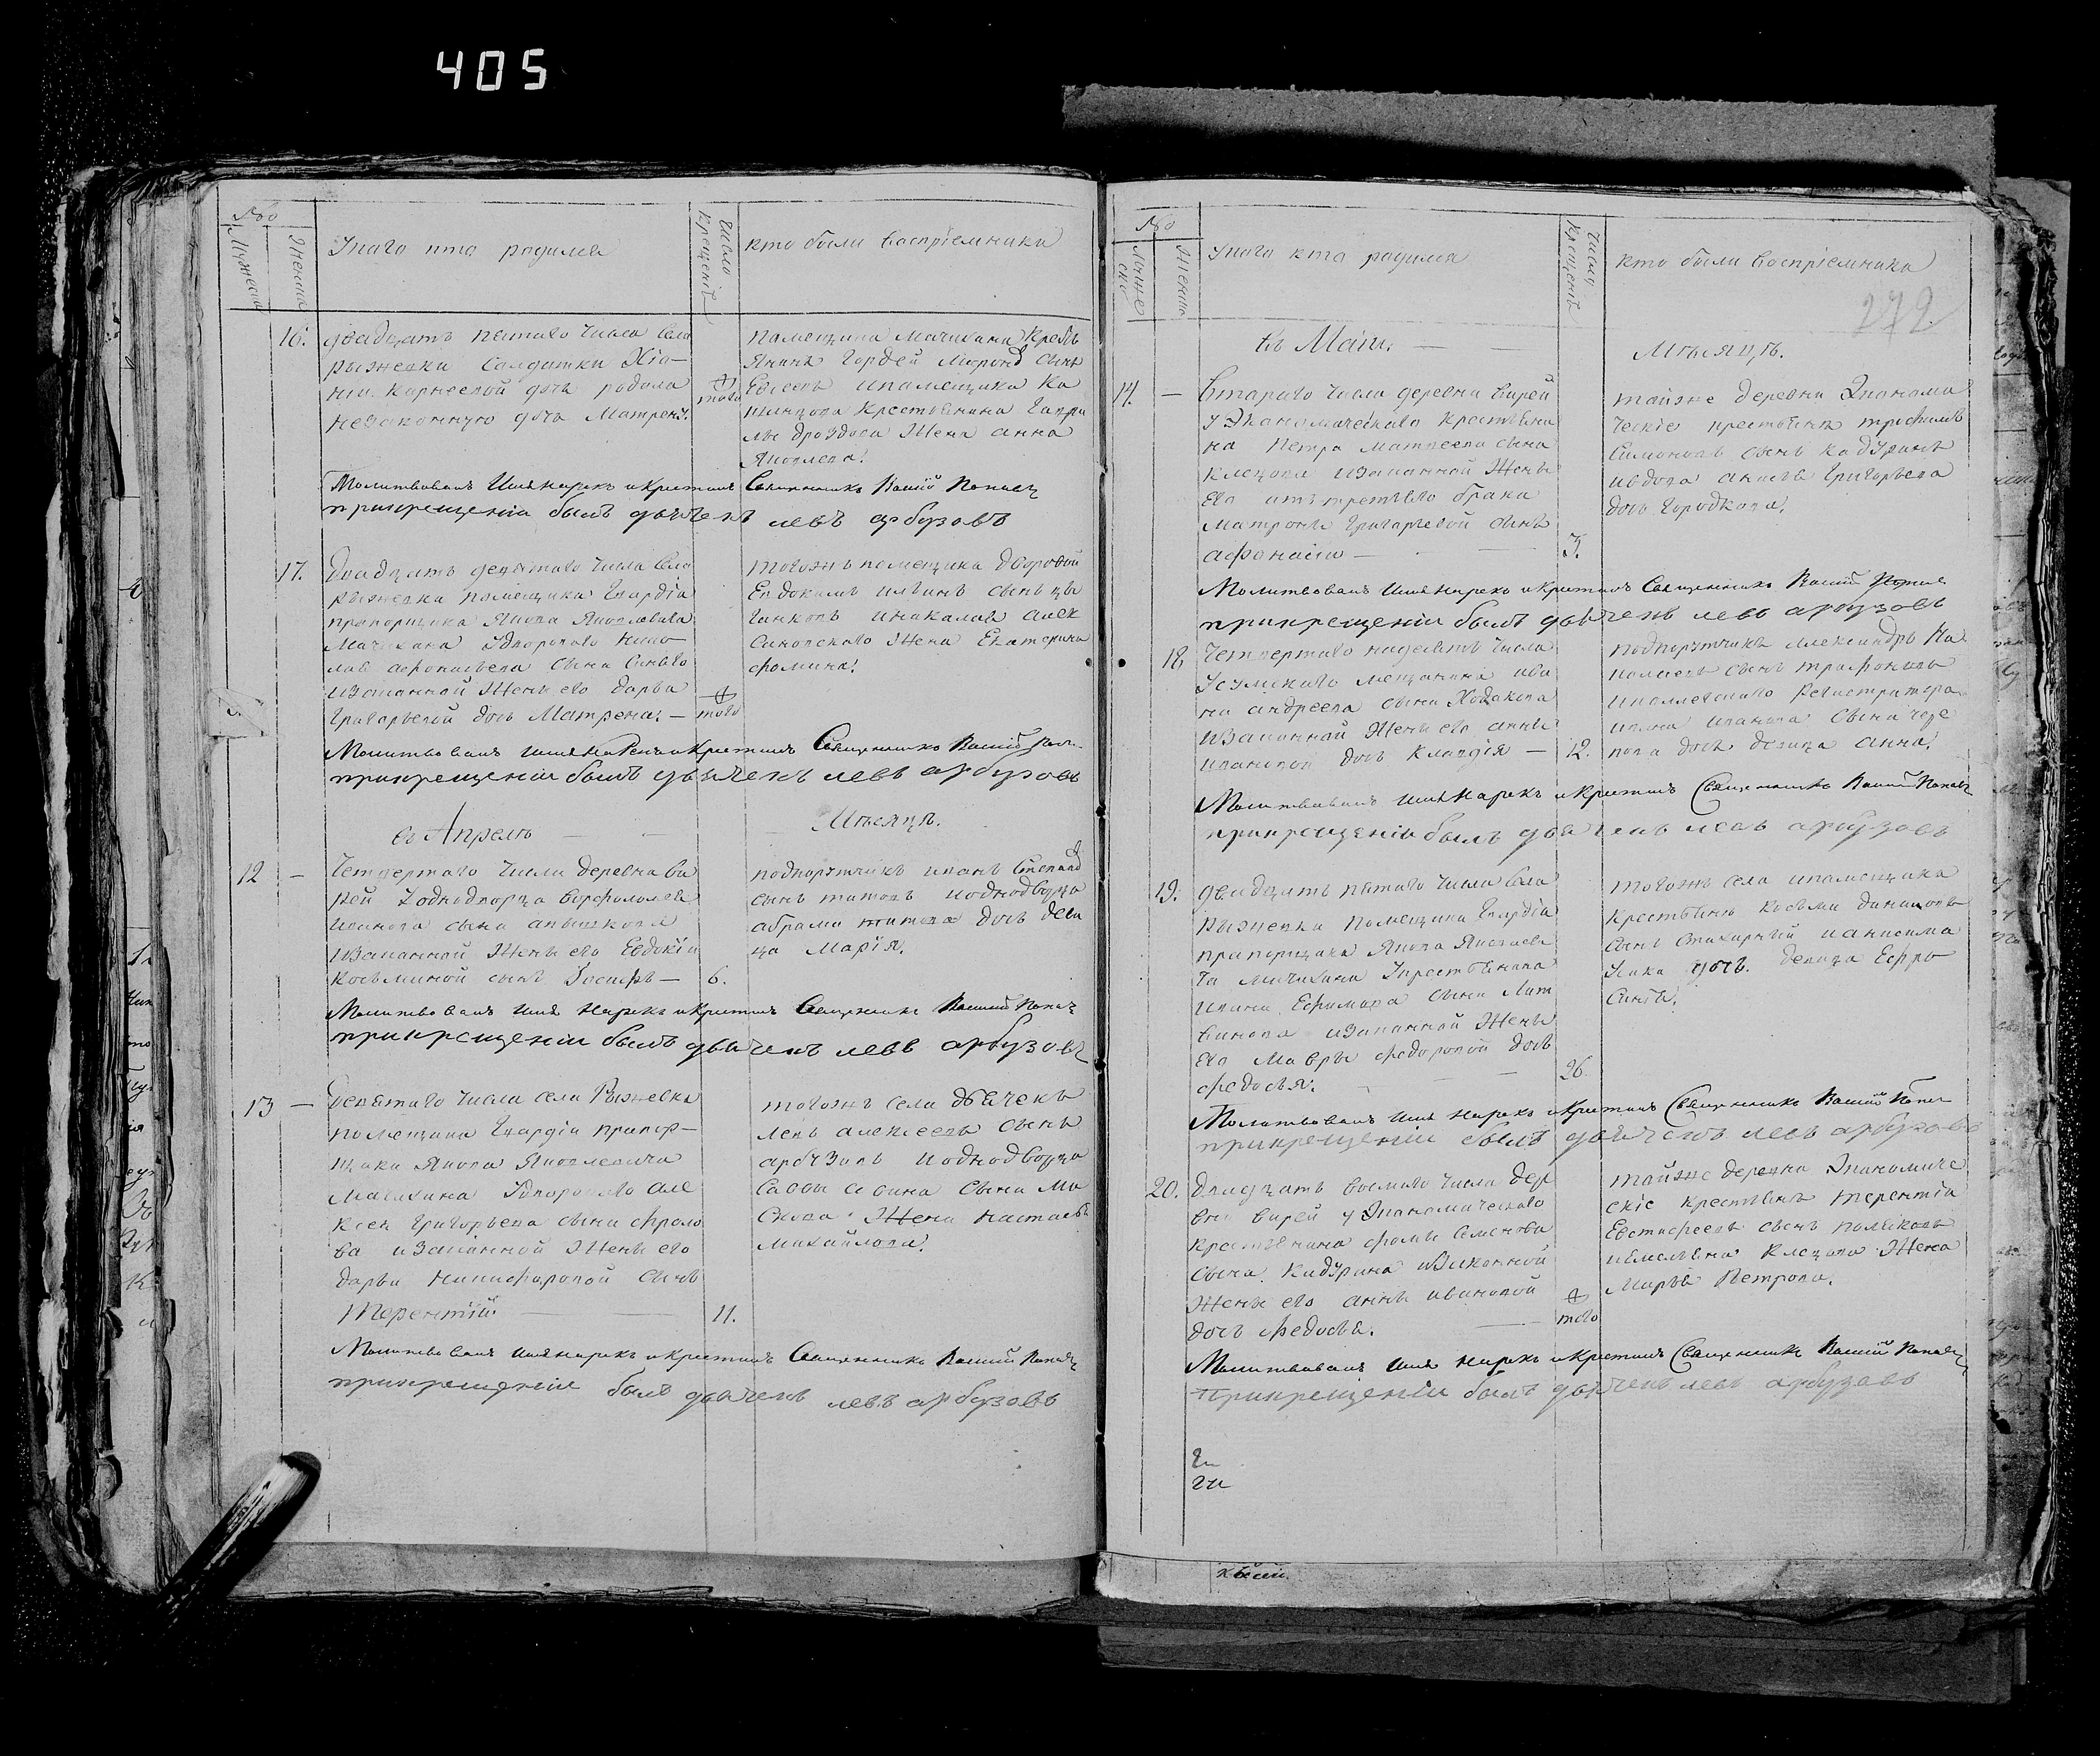 405
№
Мужеска
Женска
У каго кто родился
Число крещенiя
кто были воспрiемники
16.
двадцать пятаго числа села
рыжевки Солдатки Хiо-
нiи Карнеевой дочь родила
незаконную дочь Матрену.
того
помещика Мачихина Кресть
янинъ Гордей Миронд сынъ
Евсеевъ ипомещика Ка
Крестьянина Гаври
лы дроздова Жена анна
Яковлева.
Молитвовалъ Имя нарекъ и крестилъ Священникъ Васнiй Поповъ
прикрещенiи былъ дьячекъ левъ арбузовъ
17.
Двадцать девятаго числа села
Рыжевки помещика Гвардiи
прапорщика Якова Яковлевича
Мачихина Удворового Нико
лая афонасьева сына Синяго
изаконной Жены его дарьи
Григорьевой дочь Матрена. —
того
тогожъ помещика дворовой
Евдокимъ ильинъ сынъ цы
ганковъ иникалая алек
Синопского Жена Екатерина
фомина.
Молитвовалъ имя нарекъ и крестилъ Священникъ Васнiй Попов
прикрещенiи былъ дьячекъ левъ арбузовъ
въ Апреле — — Месяце.
12 —
Четвертаго числа деревни ви
рей Уоднодворца ворфоломея
иванова сына
изаконной Жены его Евдокiи
Косьминой сынъ Iосифъ —
6.
подпорутчикъ иванъ Степанд
сынъ титовъ иоднодворца
абрама титова дочь деви
ца Марiя.
Молитвовалъ имя нарекъ и крестилъ Священникъ Васнiй Поповъ
прикрещенiи былъ дьячекъ левъ арбузовъ
13 —
Девятаго числа села Рыжевки
помещика Гвардiи прапор-
щика Якова Яковлевича
Мачихина Удворового але
ксея Григорьева сына фроло
ва изаконной Жены его
дарьи Никифоровой сынъ
Терентiй. —
11.
тогожъ села дьячекъ
левъ алексеевъ сынъ
арбузовъ иоднодворца
Саввы савина сына Ма
скова Жена настасья
михайлова.
Молитвовалъ имя нарекъ и крестилъ Священникъ Васнiй Поповъ
прикрещенiи былъ дьячекъ левъ арбузовъ
№
Муже ска
Женска
У каго кто родился
Число Крещенiя
кто были воспрiемники
272
въ Маiи. —
Месяце.
14. —
втараго числа деревни вирей
у Экономическаго крестьяни
на Петра матвеева сына
Клецова изаконной Жены
его отъ третьего брака
Матроны Григорьевой сынъ
афонасiи —
3.
тойже деревни Экономи
ческiе крестьянъ трофимъ
Симоновъ сынъ кадуринъ
ивдова Григорьева
дочь Городкова.
Молитвовалъ имя нарекъ и крестилъ Священникъ Васнiй Попов
прикрещенiи былъ дьячекъ левъ арбузовъ
18.
Четвертаго надесять числа
Усумскаго мещанина ива
на андреева сына Ходакова
изаконной Жены его анны
ивановой дочь Клавдiя —
12.
подпорутчикъ Александръ
сынъ трифоновъ
иколлежскаго Регистратора
ивана иванова сына
пова дочь девица анна.
Молитвовалъ имя нарекъ и крестилъ Священникъ Васнiй Поповъ
прикрещенiи былъ дьячекъ левъ арбузовъ
19.
двадцать пятаго числа села
Рыжевки помещика Гвардiи
прапорщика Якова Яковлеви
ча мачихина Укрестьянина
ивана Ефимова сына Лит
винова изаконной Жены
его Мавры федоровой дочь
федосья. —
26.
тогожъ села ипомещика
крестьянинъ косьма даниловъ
сынъ ианисима
дочь девица Ефро
синья.
Молитвовалъ имя нарекъ и крестилъ Священникъ Васнiй Попов
прикрещенiи былъ дьячекъ левъ арбузовъ
20.
двадцать восмаго числа дер
вни вирей у Экономическаго
крестьянина фомы семенова
сына Кадурина изаконной
Жены его анны ивановой
дочь федосья. —
того
тойже деревни Экономиче
скiе крестьянъ терентiй
Евстафеевъ сынъ поляковъ
Клецова Жена
Марья Петрова.
Молитвовалъ имя нарекъ и крестилъ Священникъ Васнiй Поповъ
прикрещенiи былъ дьячекъ левъ арбузовъ